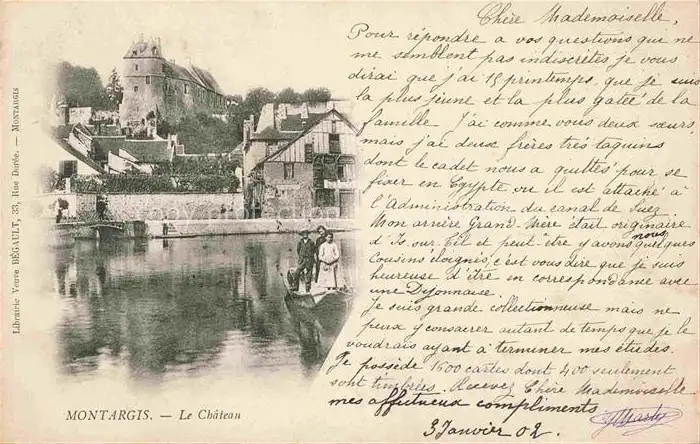 Chère Mademoiselle,
Pour répondre a vos questions qui ne
me semblent pas indiscrètes je vous
dirai que j'ai 15 printemps que je suis
la plus jeune et la plus gatée de la
famille J'ai comme vous deux sœurs
mais j'ai deux frères très taquins
dont le cadet nous a quittés pour se
fixer en Egypte ou il est attaché a
l'Administration du canal de Suez
Mon arrière Grand-Mère était originaire
d'Is sur Til et peut-être y avons nous quelques
Cousins éloignés, c'est vous dire que je suis
heureuse d'être en correspondance avec
une Dijonnaise.
Je suis grande collectionneuse mais ne
peux y consacrer autant de temps que je le
voudrais ayant à terminer mes études.
Je possède 1600 cartes dont 400 seulement
sont timbrées. Recevez Chère Mademoiselle
mes affectueux compliments
3 Janvier 02.
MONTARGIS. — Le Château
Librairie Veuve BÉGAULT, 33, Rue Dorée. — MONTARGIS